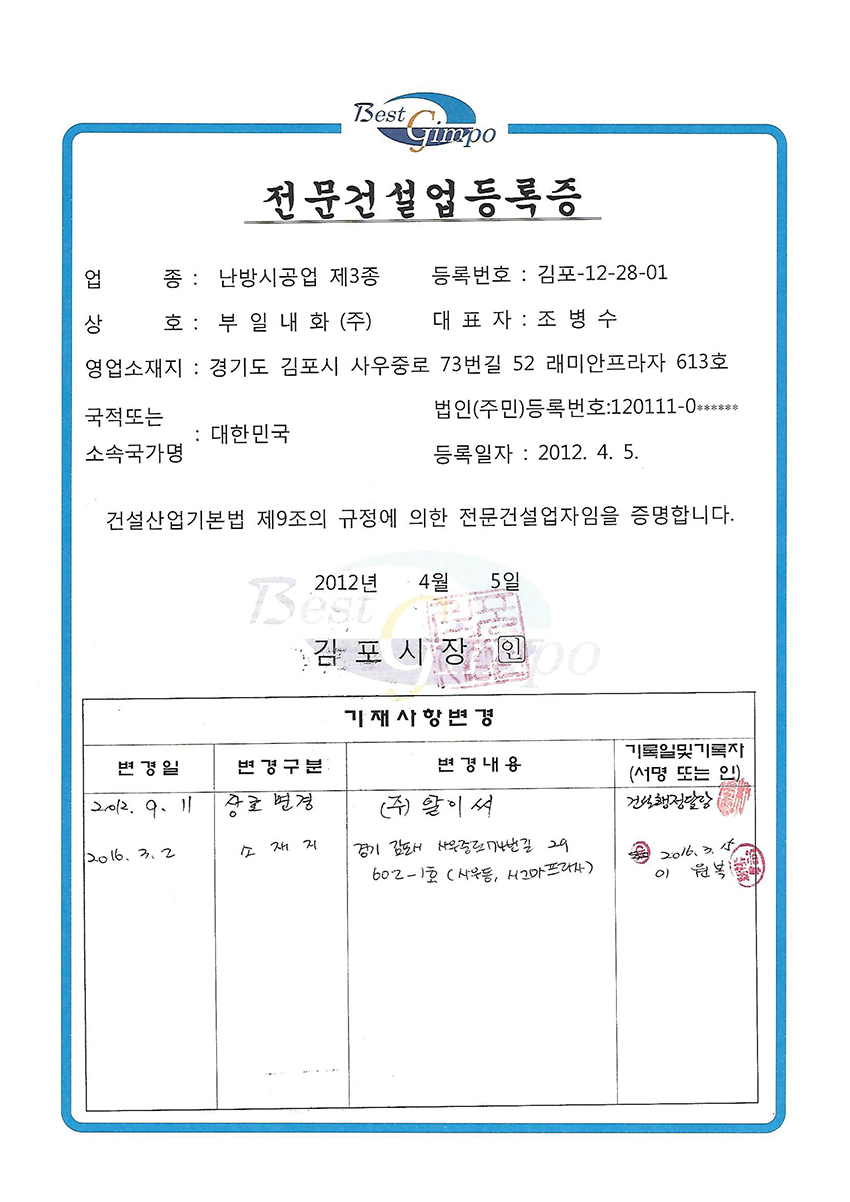 Best Gimpo
전문건설업등록증
업 종 : 난방시공업 제3종 등록번호 : 김포-12-28-01
상 호 : 부 일 내 화 (주) 대 표 자 : 조 병 수
영업소재지 : 경기도 김포시 사우중로 73번길 52 래미안프라자 613호
국적또는
소속국가명 : 대한민국
법인(주민)등록번호:120111-0******
등록일자 : 2012. 4. 5.
건설산업기본법 제9조의 규정에 의한 전문건설업자임을 증명합니다.
Best Gimpo
2012년 4월 5일
김 포 시 장 인
기재사항변경
변경일 변경구분 변경내용 기록일및기록자
(서명 또는 인)
2012. 9. 11 상호변경 (주) 알이써 건설행정담당
2016. 3. 2 소재지 경기 김포시 사우중로74번길 29 2016. 3.
602-1호 (사우동, 시그마프라자) 이 원복